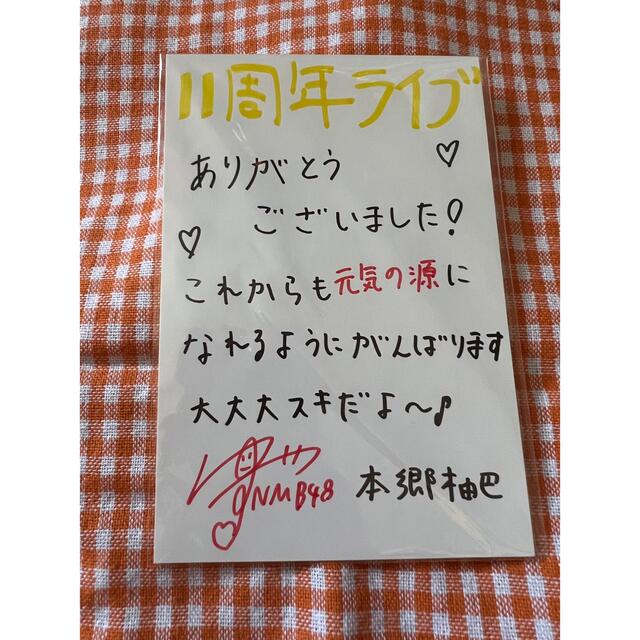 11周年ライブ
ありがとう
ございました!
これからも元気の源に
なれるようにがんばります
大大大スキだよ〜♪
NMB48 本郷柚巴